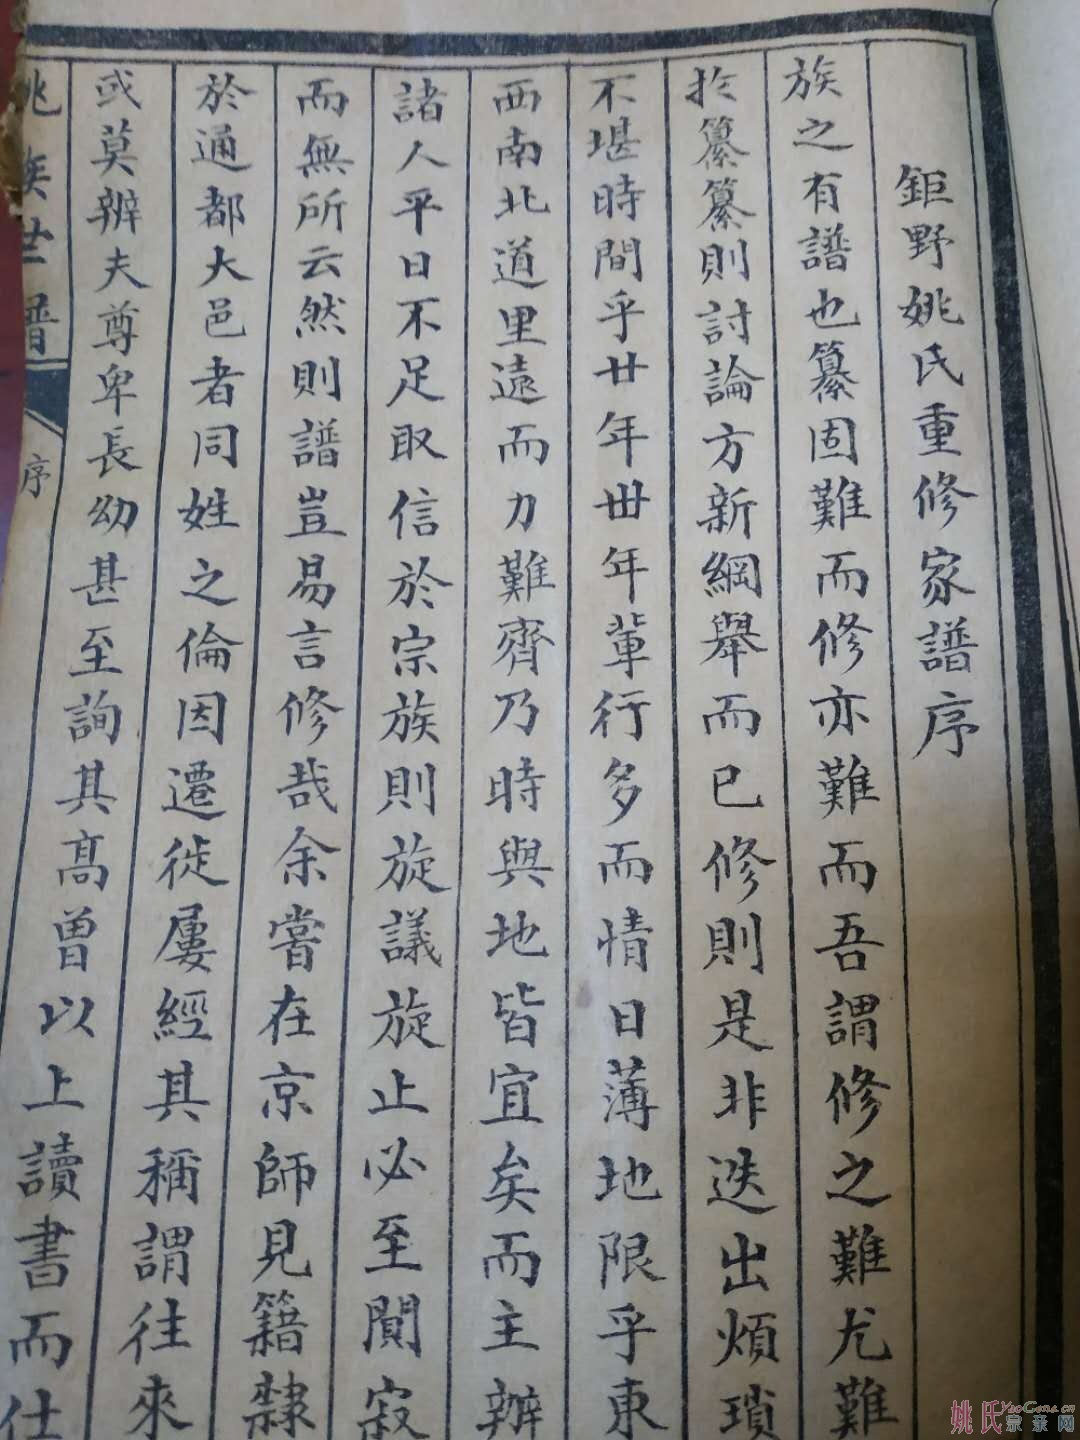 鉅野姚氏重修家譜序
族之有譜也纂固難而修亦難而吾謂修之難尤難
於纂纂則討論方新綱舉而已修則是非迭出煩瑣
不堪時間乎廿年卅年輩行多而情日薄地限乎東
西南北道里遠而力難齊乃時與地皆宜矣而主辦
諸人平日不足取信於宗族則旋議旋止必至闃寂
而無所云然則譜豈易言修哉余嘗在京師見籍隸
於通都大邑者同姓之倫因遷徙屢經其稱謂往來
或莫辨夫尊卑長幼甚至詢其高曾以上讀書而仕
姚族世譜
序
姚氏宗亲网
YaoGens.cn